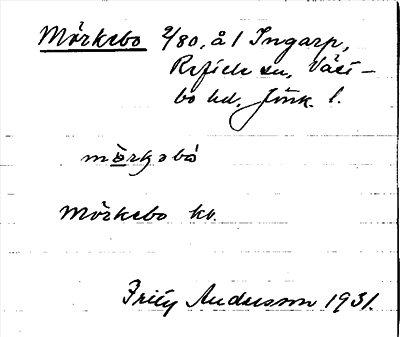 Mörkebo 2/80, å 1 Ingarp,
Reftele sn, Västbo
hd, Jönk. l.
mörkabo
Mörkebo ko.
Fritz Andersson 1931.